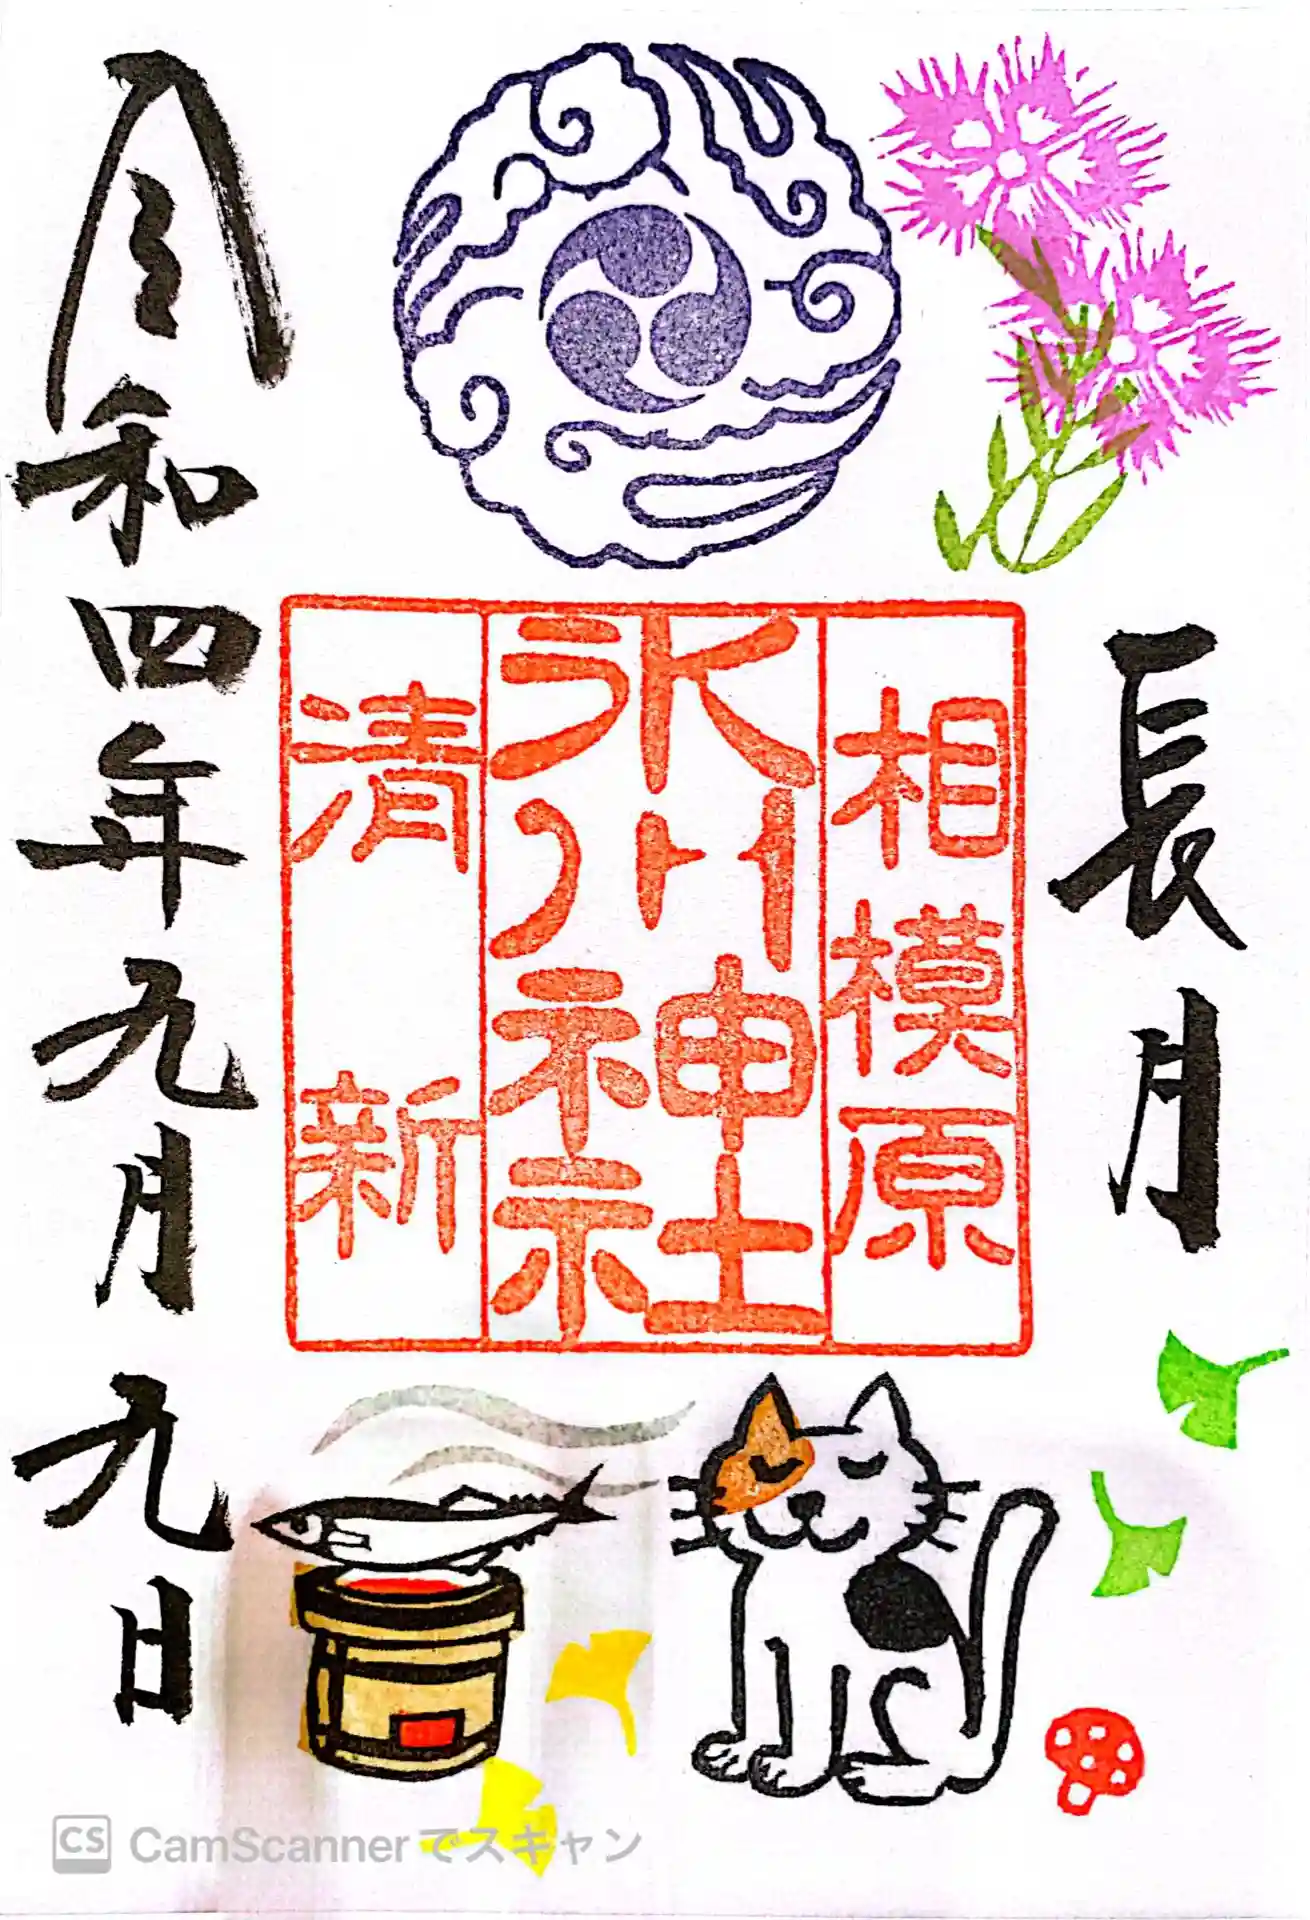 長月
相模原
氷川神社
清新
令和四年九月九日
CS CamScannerでスキャン